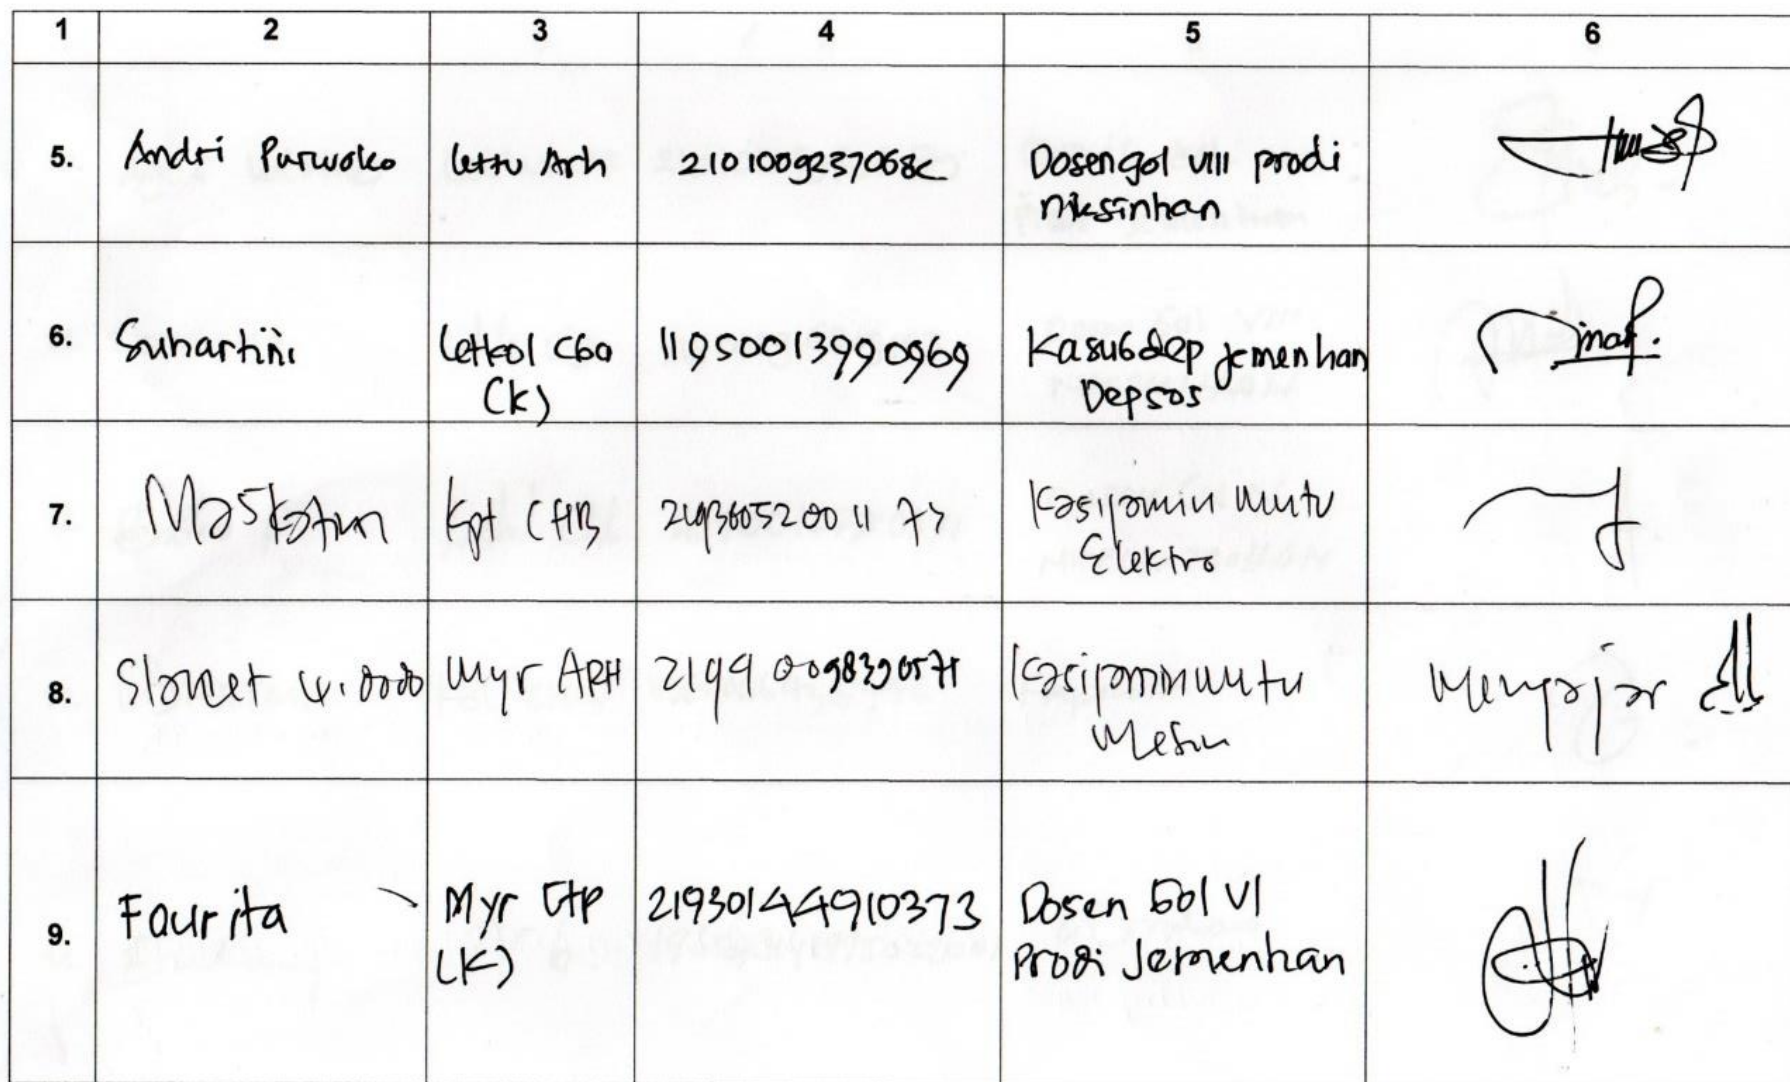 1 2 3 4 5 6
5. Andri Purwoko Lettu Arh 21010092370682 Dosen gol VIII prodi
niksinhan
6. Suhartini Letkol Cba 11950013990969 Kasubdep jemenhan
(K) Depsos
7. Maskatun Kpt CHB Kasijamin mutu
Elektro
8. Slamet Myr ARH Kasijaminmutu Mengajar
Mesin
9. Faurita Myr Ctp 21930144910373 Dosen Gol VI
(K) Prodi Jemenhan